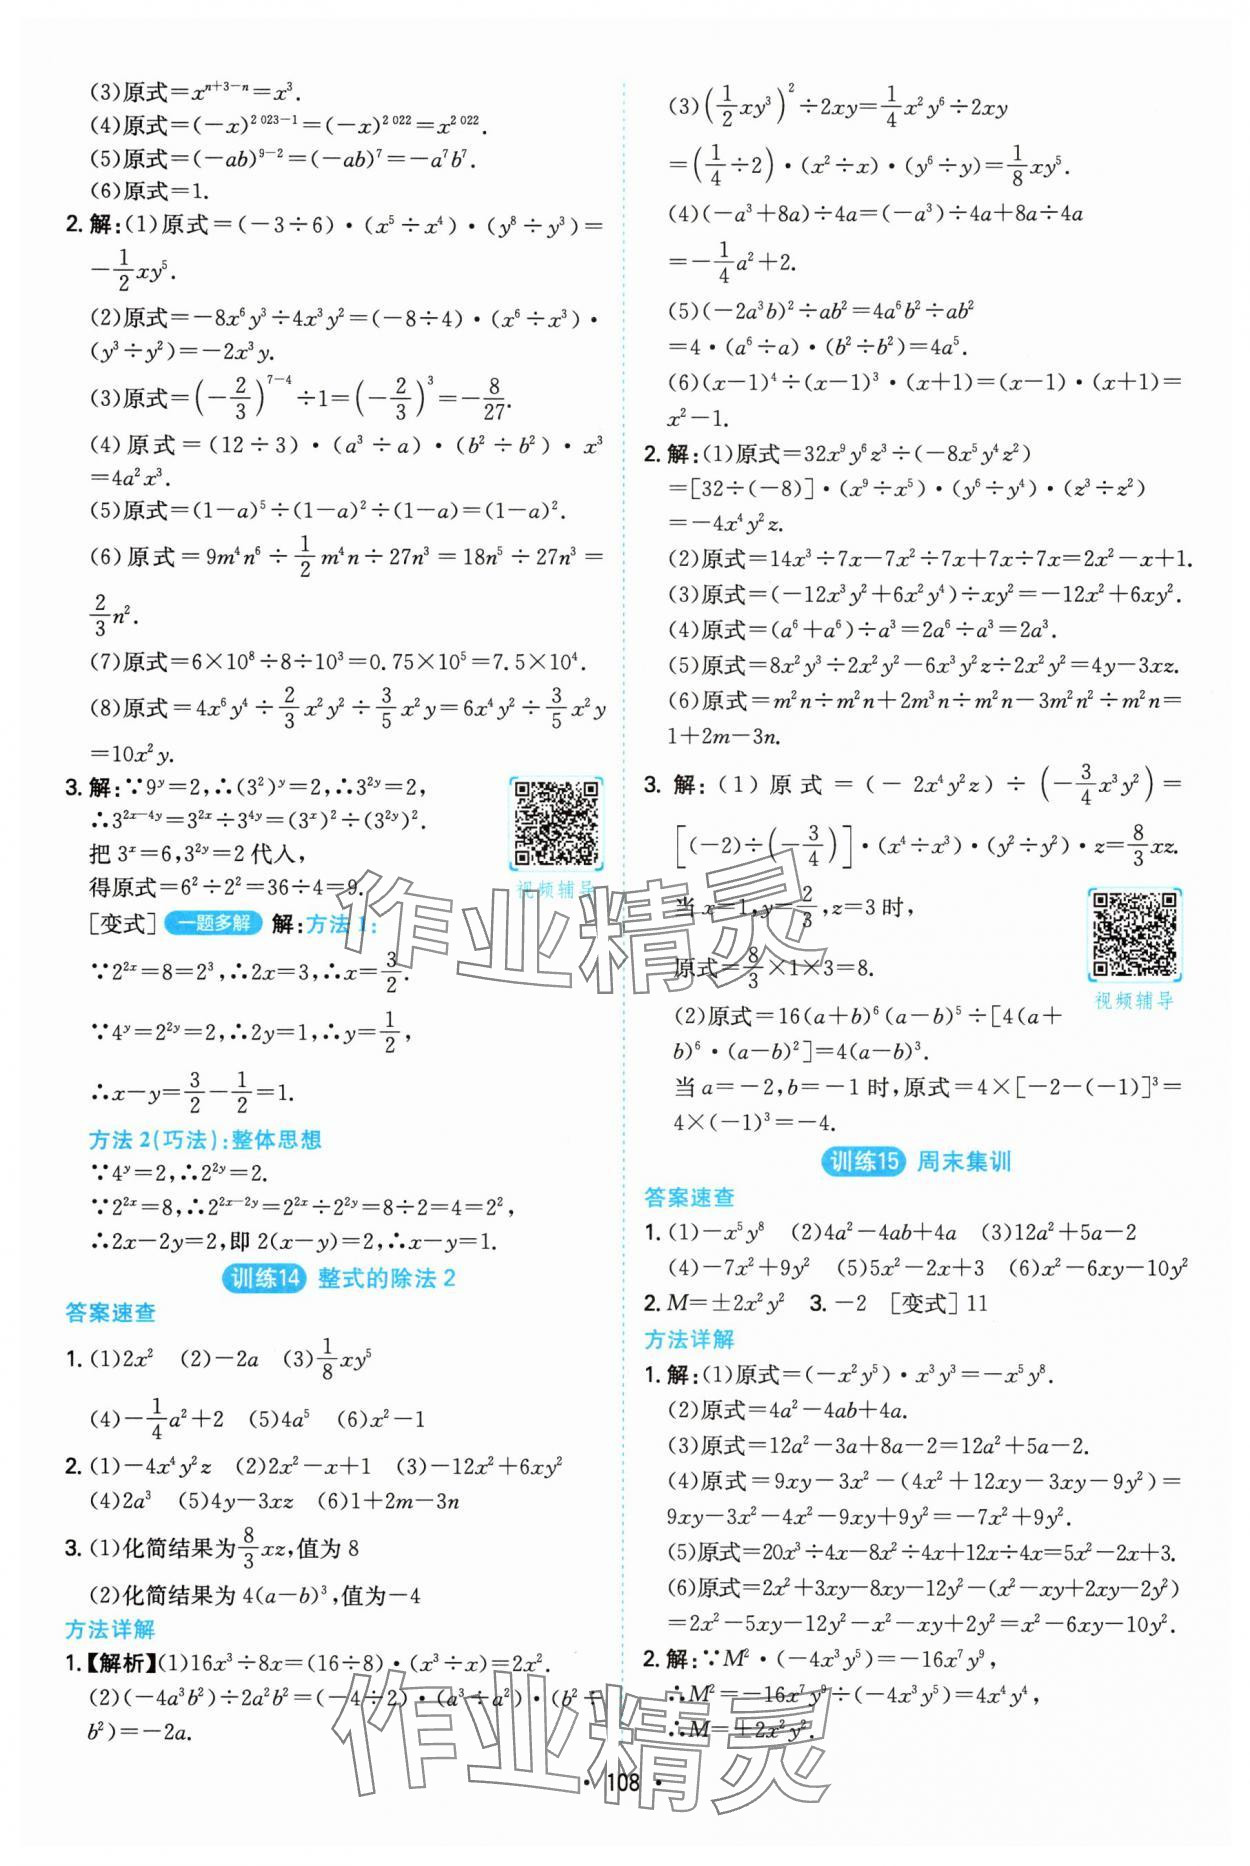 (3)原式=x^{n+3-n}=x³.
(4)原式=(-x)^{2 023-1}=(-x)^{2 022}=x^{2 022}.
(5)原式=(-ab)^{9-2}=(-ab)⁷=-a⁷b⁷.
(6)原式=1.
2. 解:(1)原式=(-3÷6)·(x⁵÷x⁴)·(y⁸÷y³)=
-\frac{1}{2}xy⁵.
(2)原式=-8x⁶y³÷4x³y²=(-8÷4)·(x⁶÷x³)·
(y³÷y²)=-2x³y.
(3)原式=(-\frac{2}{3})^{7-4}÷1=(-\frac{2}{3})³=-\frac{8}{27}.
(4)原式=(12÷3)·(a³÷a)·(b²÷b²)·x³
=4a²x³.
(5)原式=(1-a)⁵÷(1-a)²÷(1-a)=(1-a)².
(6)原式=9m⁴n⁶÷\frac{1}{2}m⁴n÷27n³=18n⁵÷27n³=
\frac{2}{3}n².
(7)原式=6×10⁸÷8÷10³=0.75×10⁵=7.5×10⁴.
(8)原式=4x⁶y⁴÷\frac{2}{3}x²y²÷\frac{3}{5}x²y=6x⁴y²÷\frac{3}{5}x²y
=10x²y.
3. 解:∵9^y=2,∴(3²)^y=2,∴3^{2y}=2,
∴3^{2x-4y}=3^{2x}÷3^{4y}=(3^x)²÷(3^{2y})².
把3^x=6,3^{2y}=2代入,
得原式=6²÷2²=36÷4=9.
视频辅导
[变式] 一题多解 解:方法1:
∵2^{2x}=8=2³,∴2x=3,∴x=\frac{3}{2}.
∵4^y=2^{2y}=2,∴2y=1,∴y=\frac{1}{2},
∴x-y=\frac{3}{2}-\frac{1}{2}=1.
方法2(巧法):整体思想
∵4^y=2,∴2^{2y}=2.
∵2^{2x}=8,∴2^{2x-2y}=2^{2x}÷2^{2y}=8÷2=4=2²,
∴2x-2y=2,即2(x-y)=2,∴x-y=1.
训练14 整式的除法2
答案速查
1. (1)2x² (2)-2a (3)\frac{1}{8}xy⁵
(4)-\frac{1}{4}a²+2 (5)4a⁵ (6)x²-1
2. (1)-4x⁴y²z (2)2x²-x+1 (3)-12x²+6xy²
(4)2a³ (5)4y-3xz (6)1+2m-3n
3. (1)化简结果为\frac{8}{3}xz,值为8
(2)化简结果为4(a-b)³,值为-4
方法详解
1.【解析】(1)16x³÷8x=(16÷8)·(x³÷x)=2x².
(2)(-4a³b²)÷2a²b²=(-4÷2)·(a³÷a²)·(b²÷
b²)=-2a.
(3)(\frac{1}{2}xy³)²÷2xy=\frac{1}{4}x²y⁶÷2xy
=(\frac{1}{4}÷2)·(x²÷x)·(y⁶÷y)=\frac{1}{8}xy⁵.
(4)(-a³+8a)÷4a=(-a³)÷4a+8a÷4a
=-\frac{1}{4}a²+2.
(5)(-2a³b)²÷ab²=4a⁶b²÷ab²
=4·(a⁶÷a)·(b²÷b²)=4a⁵.
(6)(x-1)⁴÷(x-1)³·(x+1)=(x-1)·(x+1)=
x²-1.
2. 解:(1)原式=32x⁹y⁶z³÷(-8x⁵y⁴z²)
=[32÷(-8)]·(x⁹÷x⁵)·(y⁶÷y⁴)·(z³÷z²)
=-4x⁴y²z.
(2)原式=14x³÷7x-7x²÷7x+7x÷7x=2x²-x+1.
(3)原式=(-12x³y²+6x²y⁴)÷xy²=-12x²+6xy².
(4)原式=(a⁶+a⁶)÷a³=2a⁶÷a³=2a³.
(5)原式=8x²y³÷2x²y²-6x³y²z÷2x²y²=4y-3xz.
(6)原式=m²n÷m²n+2m³n÷m²n-3m²n²÷m²n=
1+2m-3n.
3. 解:(1)原式=(-2x⁴y²z)÷(-\frac{3}{4}x³y²)=
[(-2)÷(-\frac{3}{4})]·(x⁴÷x³)·(y²÷y²)·z=\frac{8}{3}xz.
当x=1,y=\frac{2}{3},z=3时,
原式=\frac{8}{3}×1×3=8.
视频辅导
(2)原式=16(a+b)⁶(a-b)⁵÷[4(a+
b)⁶·(a-b)²]=4(a-b)³.
当a=-2,b=-1时,原式=4×[-2-(-1)]³=
4×(-1)³=-4.
训练15 周末集训
答案速查
1. (1)-x⁵y⁸ (2)4a²-4ab+4a (3)12a²+5a-2
(4)-7x²+9y² (5)5x²-2x+3 (6)x²-6xy-10y²
2. M=±2x²y² 3. -2 [变式]11
方法详解
1. 解:(1)原式=(-x²y⁵)·x³y³=-x⁵y⁸.
(2)原式=4a²-4ab+4a.
(3)原式=12a²-3a+8a-2=12a²+5a-2.
(4)原式=9xy-3x²-(4x²+12xy-3xy-9y²)=
9xy-3x²-4x²-9xy+9y²=-7x²+9y².
(5)原式=20x³÷4x-8x²÷4x+12x÷4x=5x²-2x+3.
(6)原式=2x²+3xy-8xy-12y²-(x²-xy+2xy-2y²)
=2x²-5xy-12y²-x²-xy+2y²=x²-6xy-10y².
2. 解:∵M²·(-4x³y⁵)=-16x⁷y⁹,
∴M²=-16x⁷y⁹÷(-4x³y⁵)=4x⁴y⁴,
∴M=±2x²y².
·108·
作业精灵
作业精灵